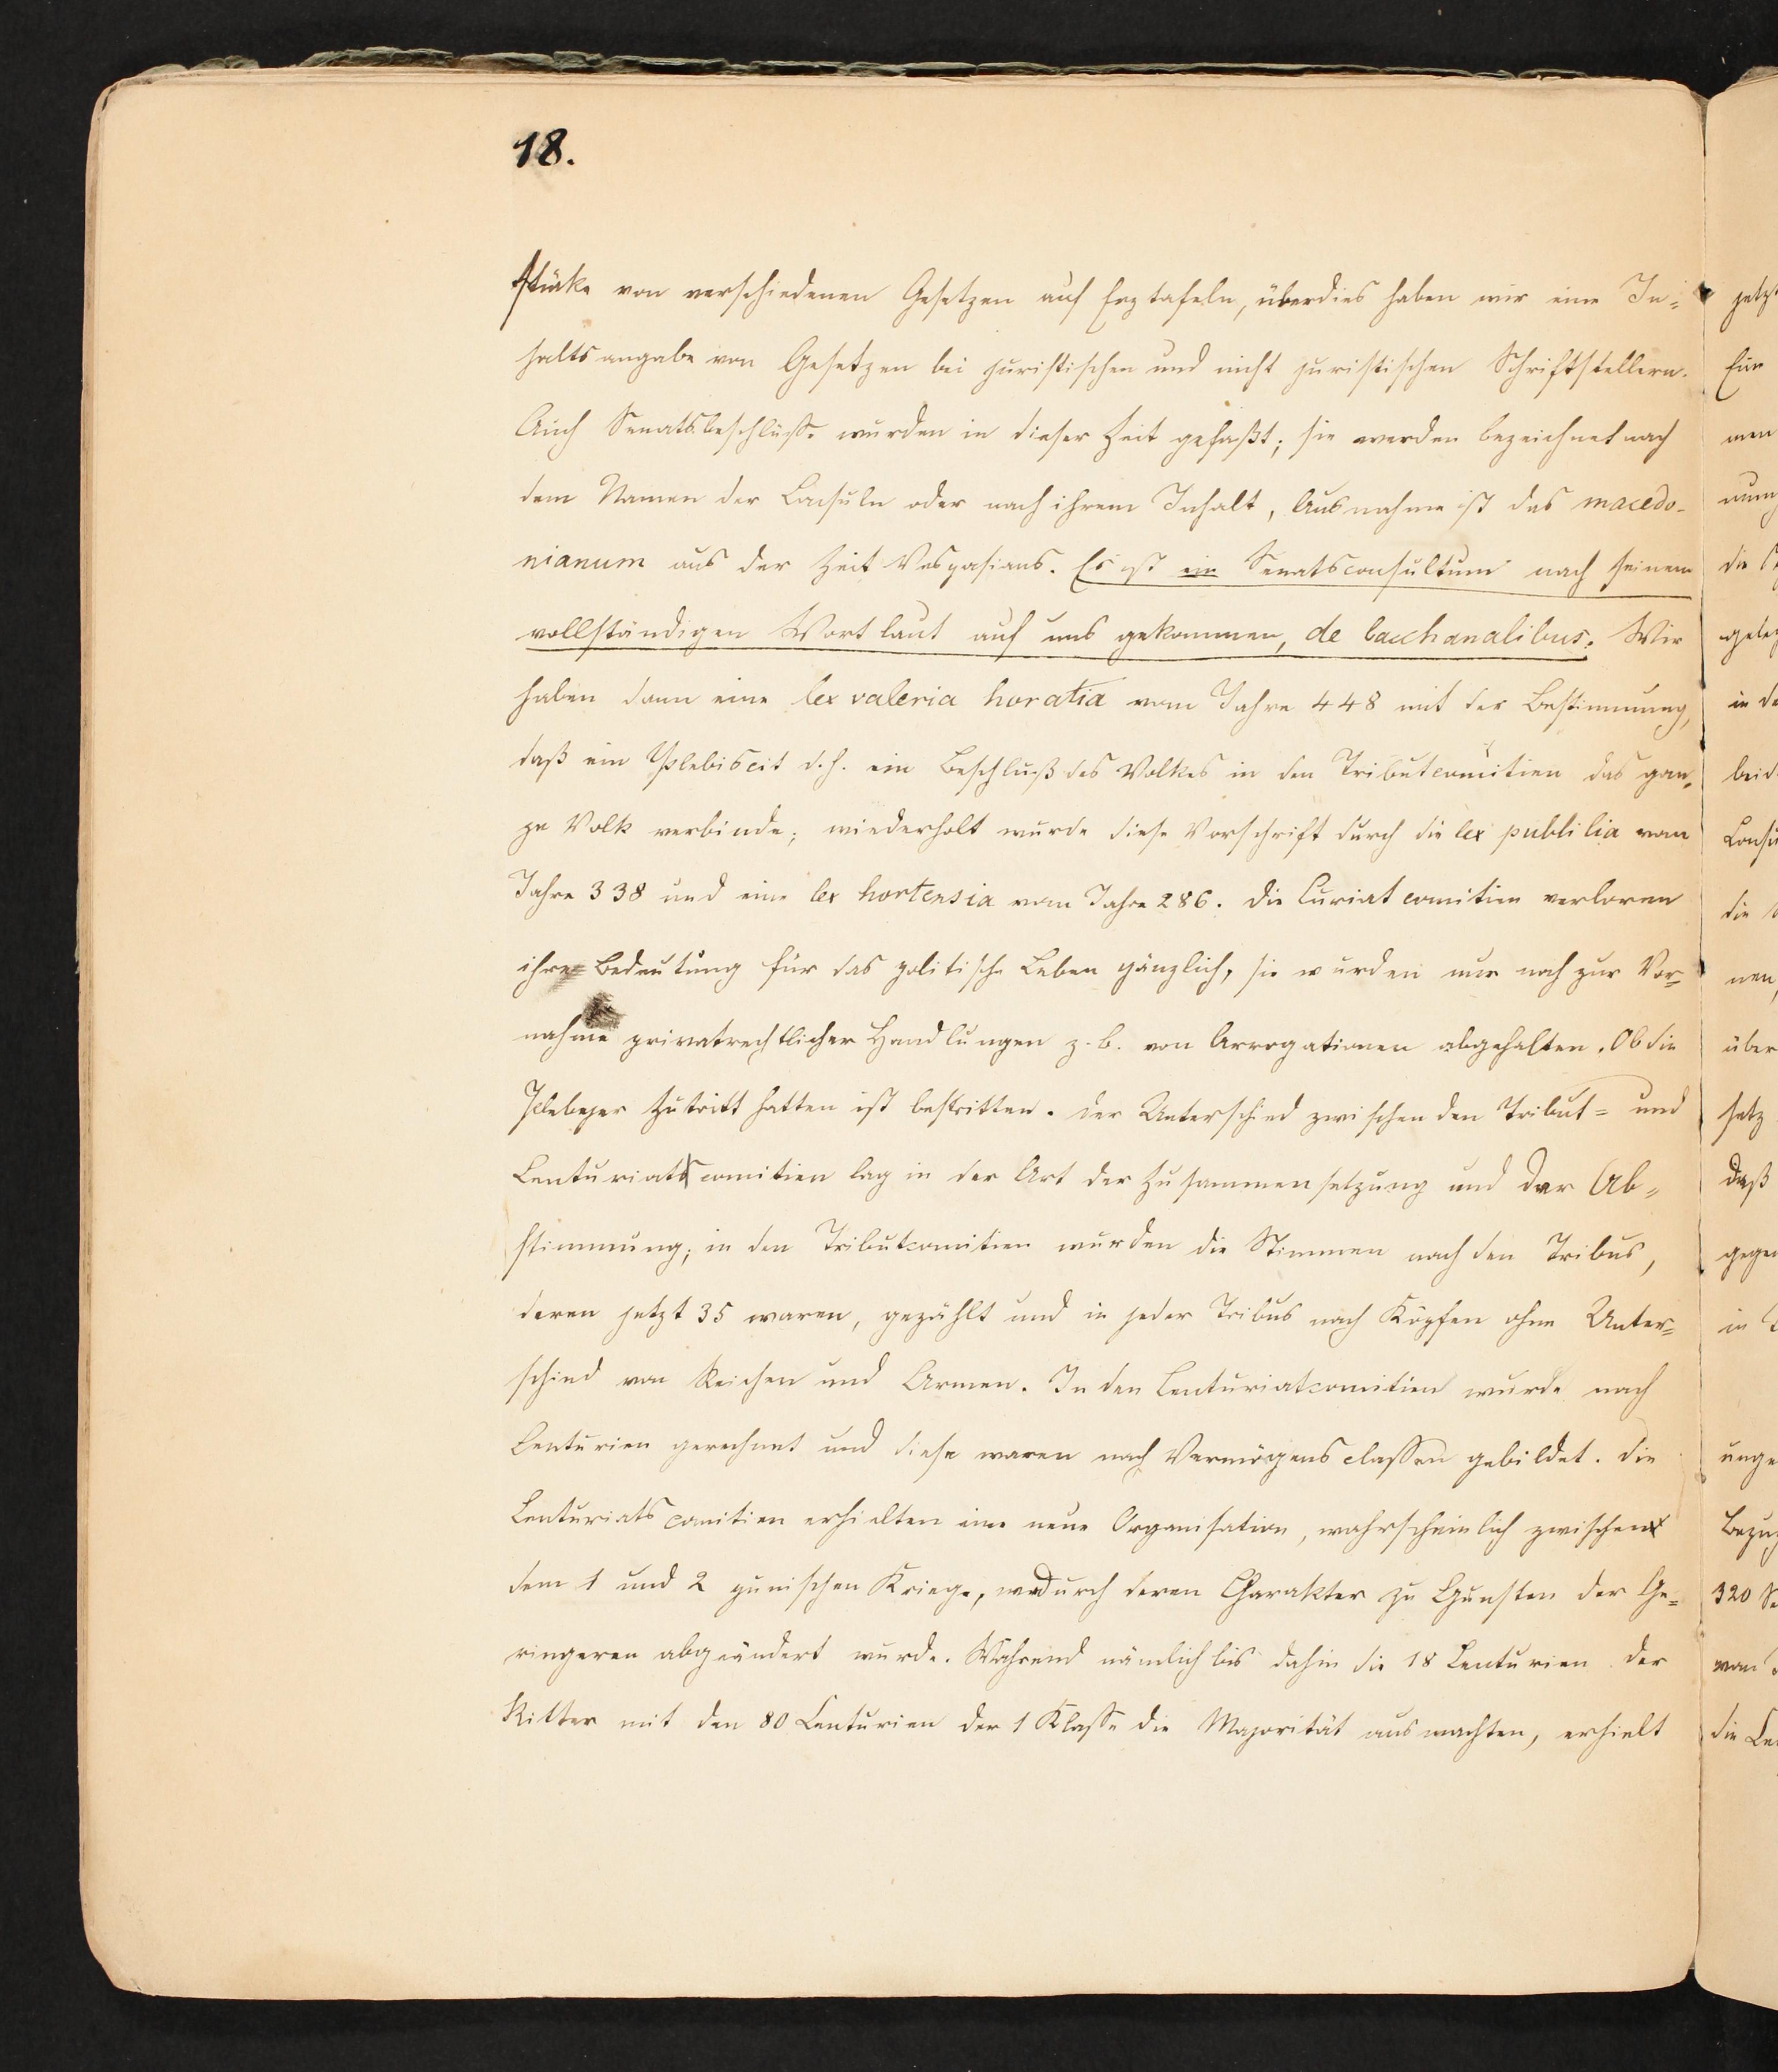 18.
stücke von verschiedenen Gesetzen auf Erztafeln, überdies haben wir eine In=
haltsangabe von Gesetzen bei juristischen und nicht juristischen Schriftstellern.
Auch Senatsbeschlüsse wurden in dieser Zeit gefaßt; sie werden bezeichnet nach
dem Namen der Consuln oder nach ihrem Inhalt, Ausnahme ist das macedo-
nianum aus der Zeit Vespasians. Es ist ein Senatsconsultum nach seinem
vollständigen Wortlaut auf uns gekommen, de bacchanalibus. Wir
haben dann eine lex valeria horatia vom Jahre 448 mit der Bestimmung,
daß ein Plebiscit d. h. ein Beschluß des Volkes in den Tributcomitien das gan=
ze Volk verbinde; wiederholt wurde diese Vorschrift durch die lex publilia vom
Jahre 338 und eine lex hortensia vom Jahre 286. Die Curiatcomitien verloren
ihre Bedeutung für das politische Leben gänzlich, sie wurden nur noch zur Vor=
nahme privatrechtlicher Handlungen z. b. von Arrogationen abgehalten. Ob die
Plebejer Zutritt hatten ist bestritten. Der Unterschied zwischen den Tribut= und
Centuriatcomitien lag in der Art der Zusammensetzung und der Ab=
stimmung; in den Tributcomitien wurden die Stimmen nach den Tribus,
deren jetzt 35 waren, gezählt und in jeder Tribus nach Köpfen ohne Unter=
schied von Reichen und Armen. In den Centuriatcomitien wurde nach
Centurien gerechnet und diese waren nach Vermögensclassen gebildet. Die
Centuriatscomitien erhielten eine neue Organisation, wahrscheinlich zwischen
dem 1 und 2 punischen Kriege, wodurch deren Charakter zu Gunsten der Ge=
ringeren abgeändert wurde. Während nämlich bis dahin die 18 Centurien der
Ritter mit den 80 Centurien der 1 Klasse die Majorität ausmachten, erhielt
jetzt
Ein
men
die
in
über
setz
daß
gegen
in
320
die